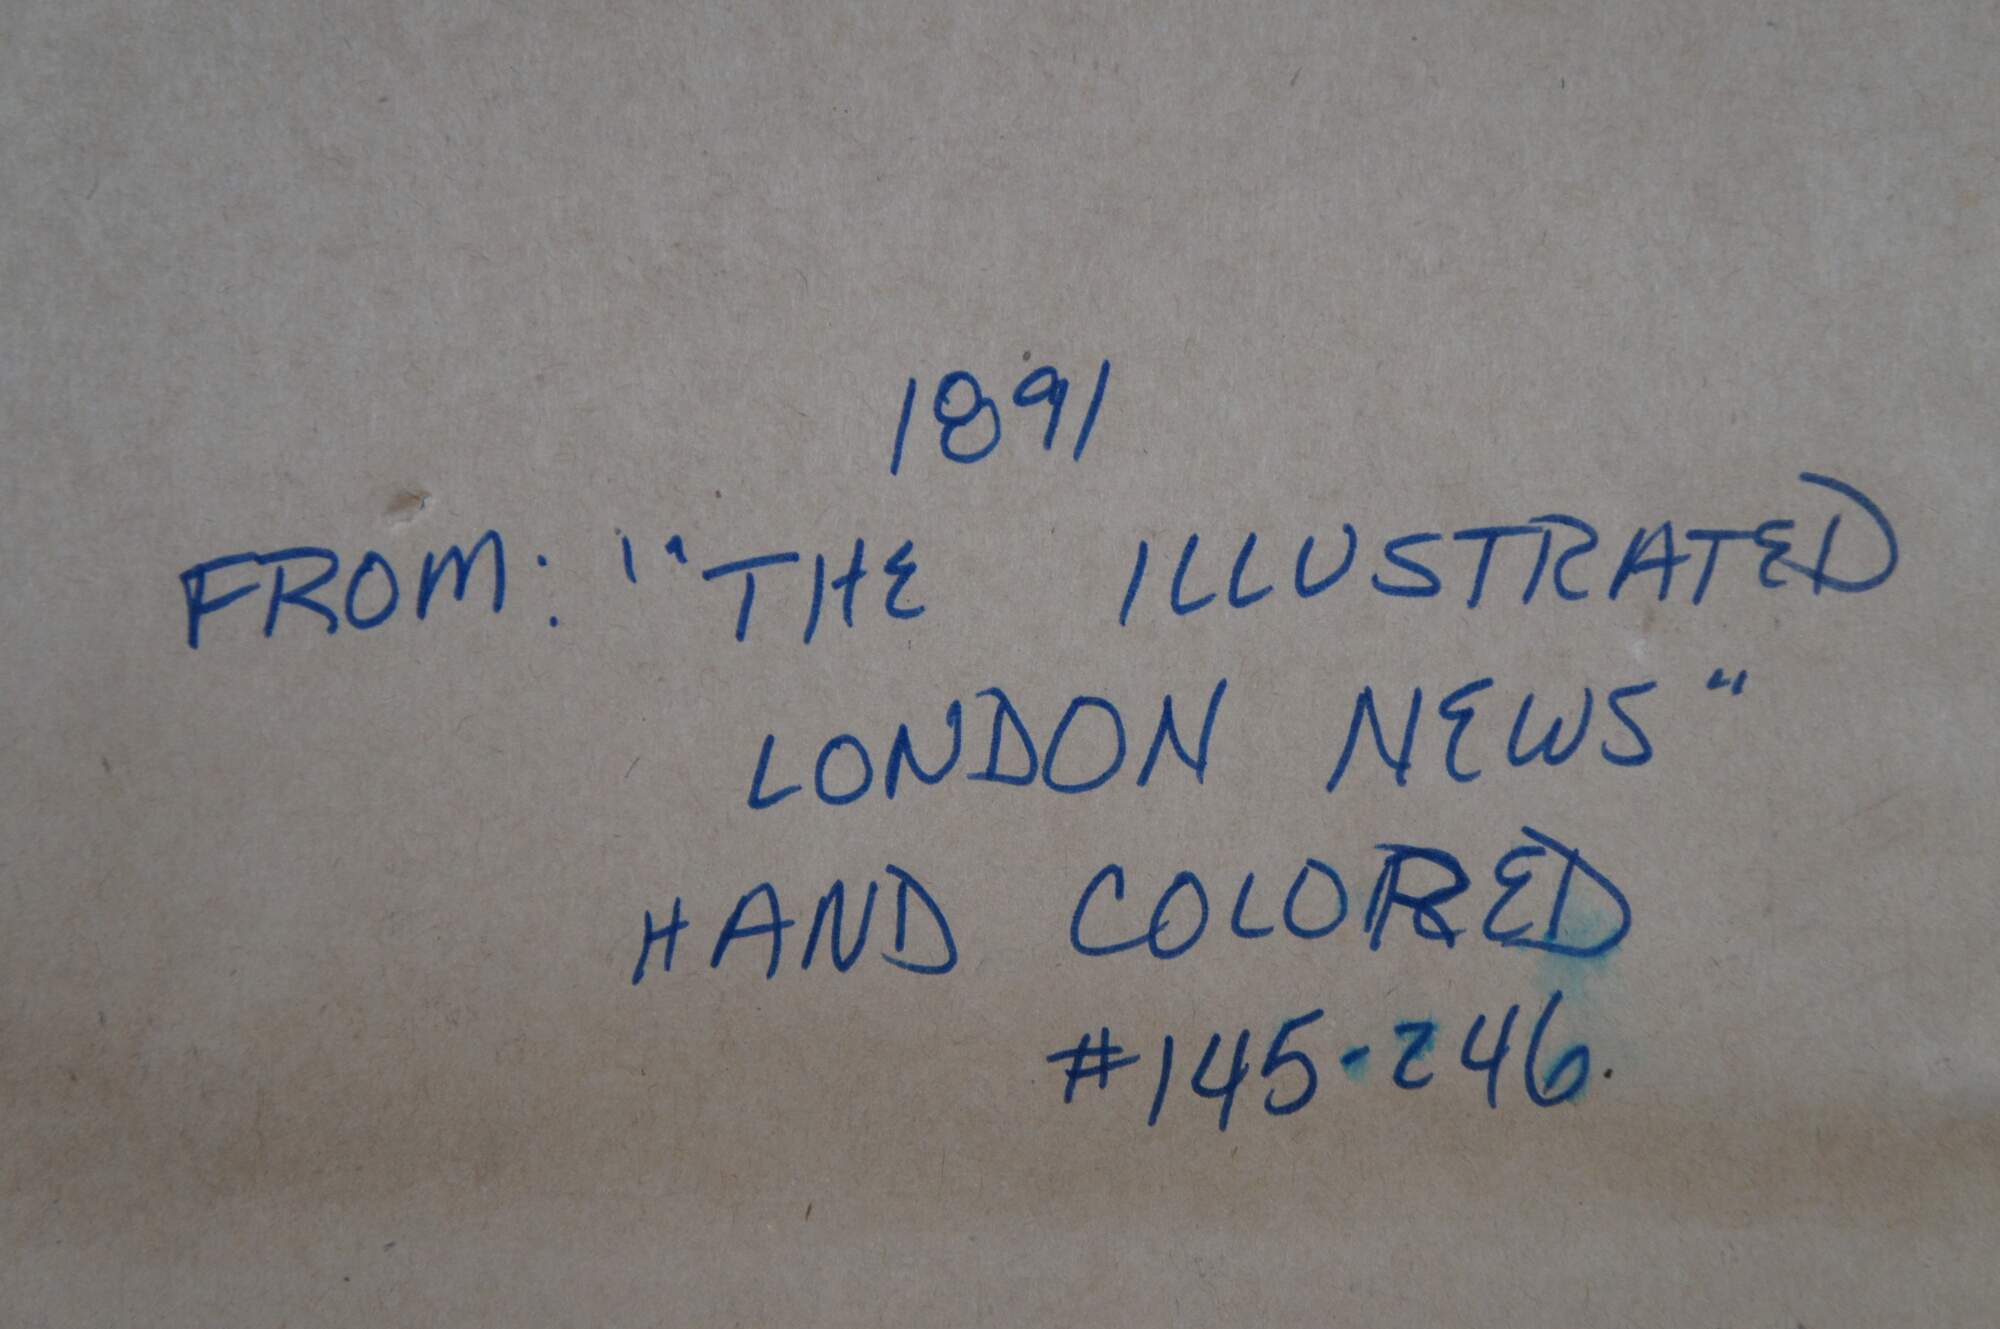 1891
FROM: "THE ILLUSTRATED
LONDON NEWS"
HAND COLORED
#145-246.